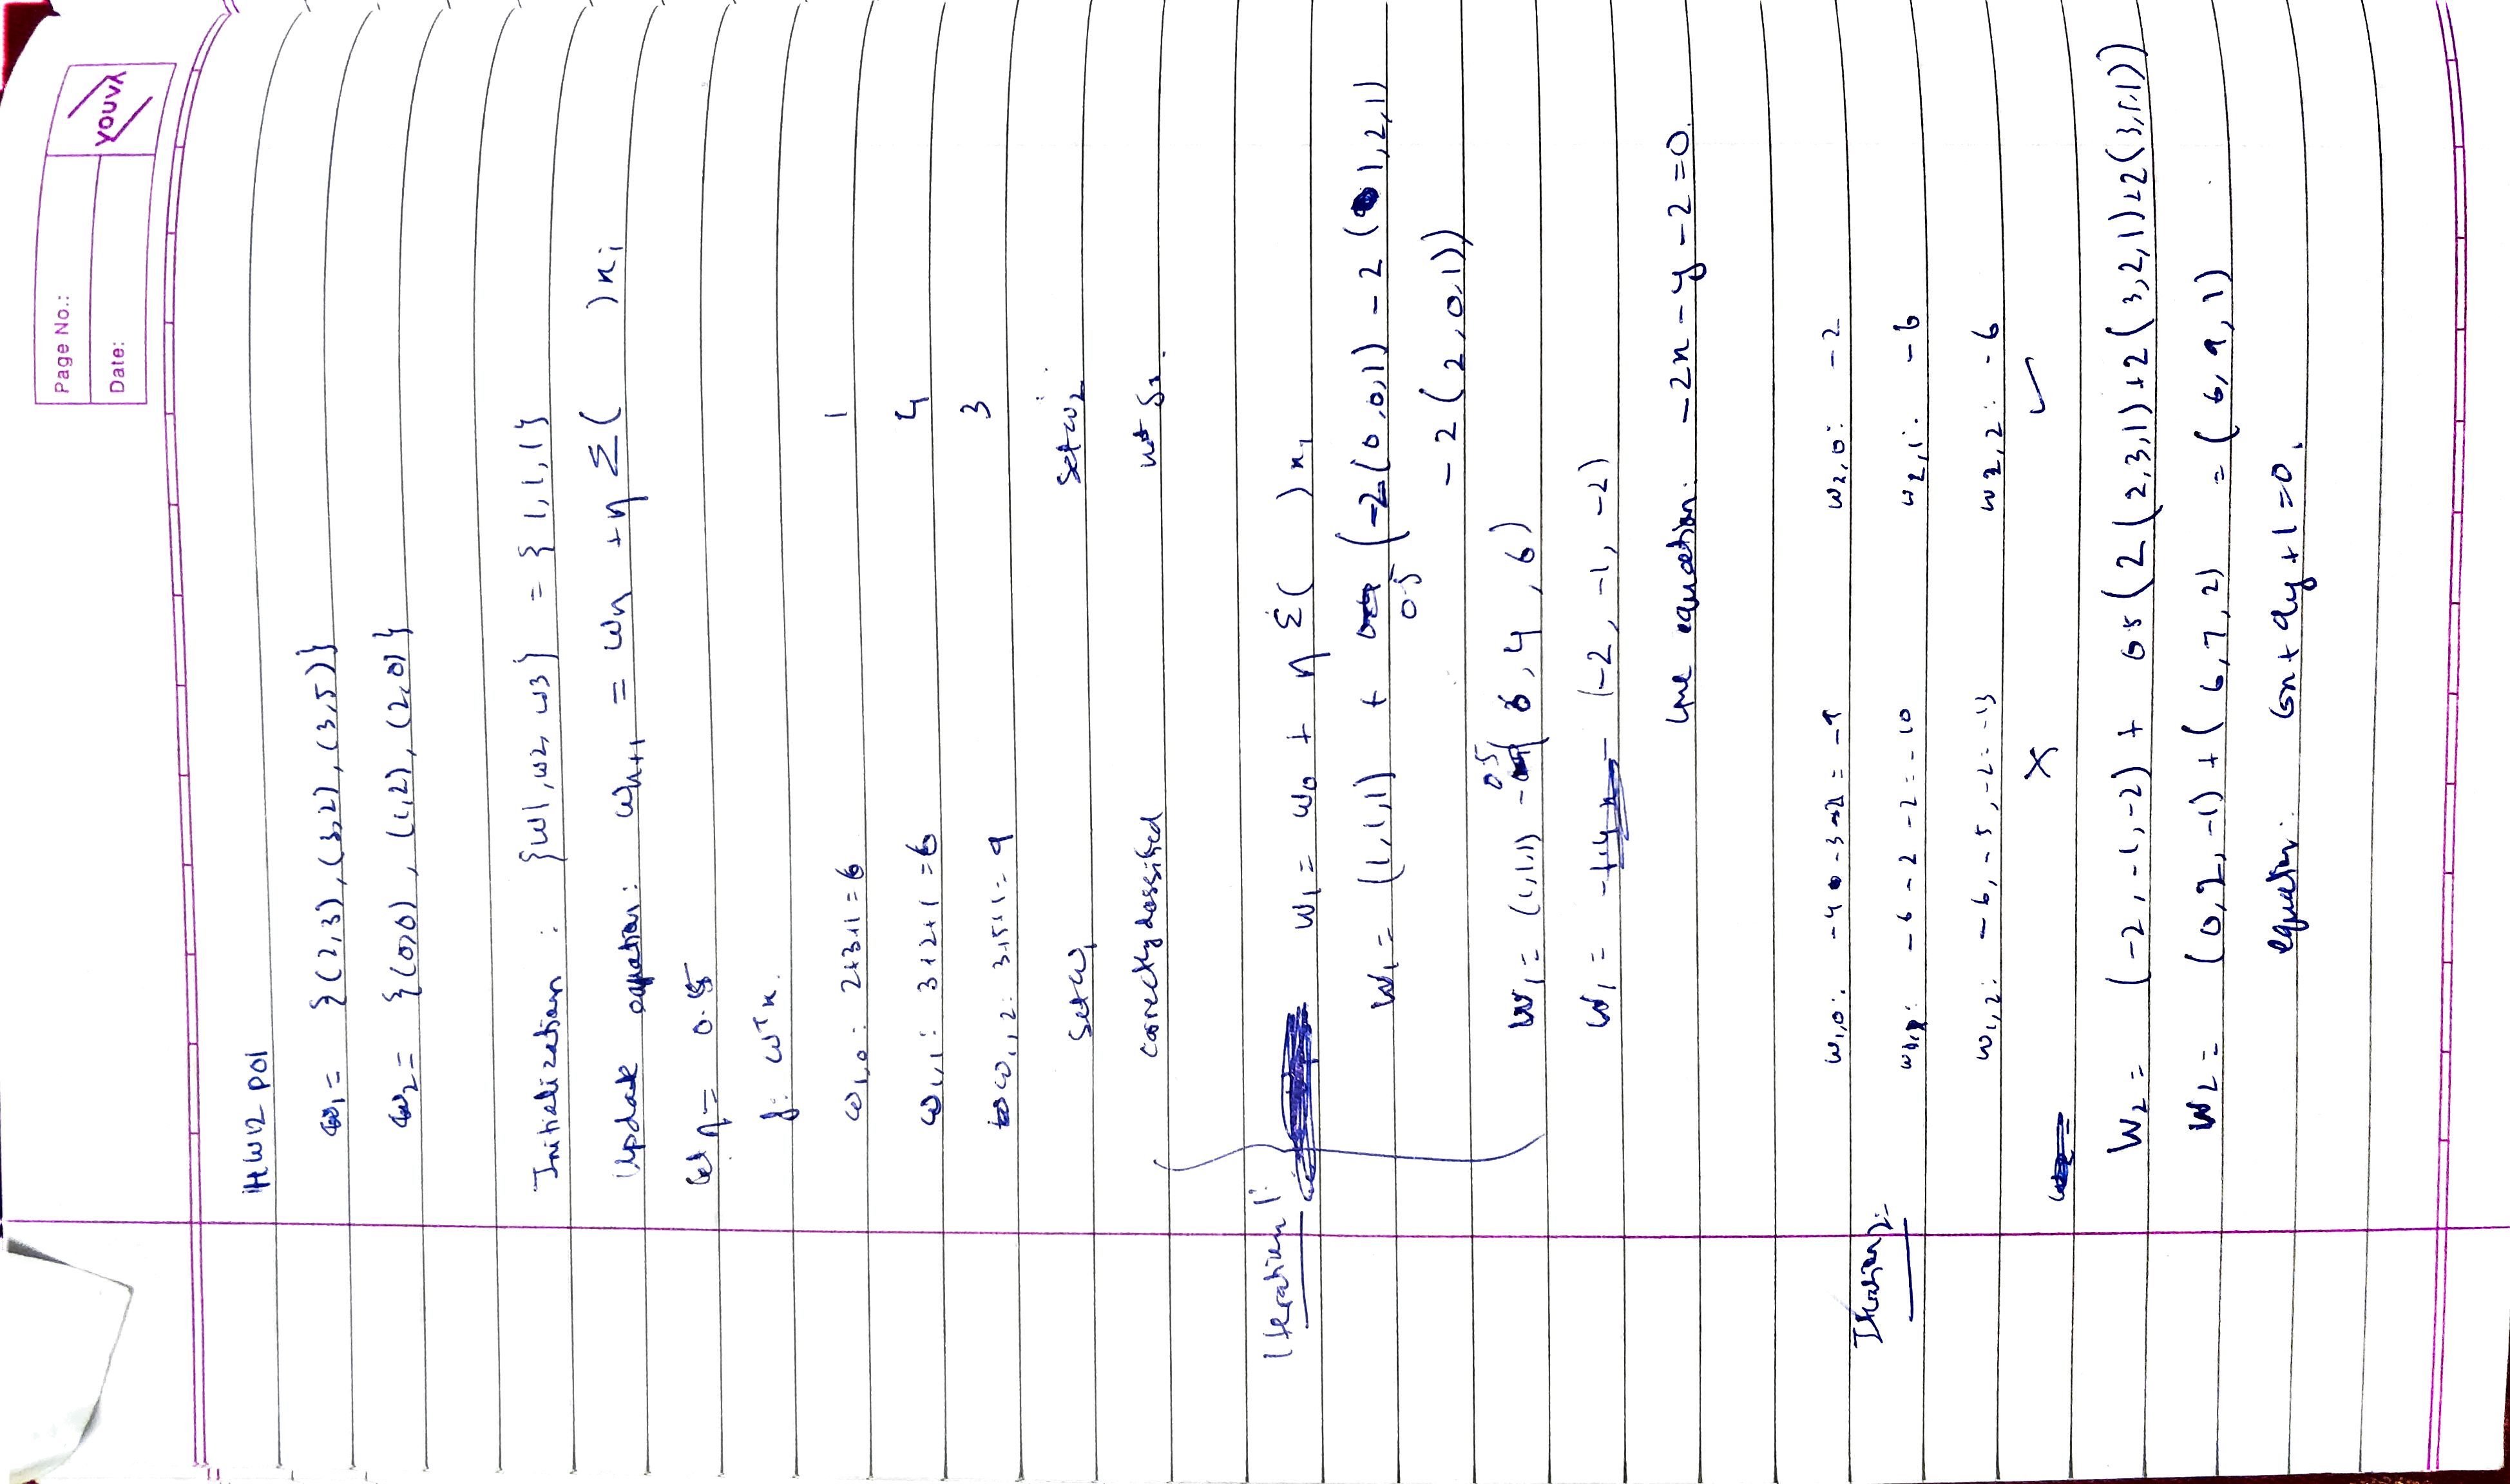 Page No.:
Date:
YOUVA
HW2 P01
ω₁ = {(2,3), (3,2), (3,5)}
ω₂ = {(0,0), (1,2), (2,0)}
Initialization : {w1, w2, w3} = {1,1,1}
Update equation: wₙ₊₁ = wₙ + η Σ( )xᵢ
let η = 0.5
y: wᵀx.
ω₁,₀: 2+3+1=6 1
ω₁,₁: 3+2+1=6 4
ω₁,₂: 3+5+1=9 3
Set ω₁ Set ω₂
correctly classified not
Iteration 1: W₁ = w₀ + η Σ( )xᵢ
W₁ = (1,1,1) + 0.5 (-2(0,0,1) - 2(1,2,1)
-2(2,0,1))
W₁ = (1,1,1) - 0.5(6,4,6)
W₁ = (-2,-1,-2)
line equation: -2x-y-2=0.
Iteration 2: w₁,₀: -4-3-2=-9 w₂,₀: -2
w₁,₁: -6-2-2=-10 w₂,₁: -6
w₁,₂: -6,-5,-2=-13 w₂,₂: -6
✗ ✓
W₂ = (-2,-1,-2) + 0.5(2(2,3,1)+2(3,2,1)+2(3,5,1))
W₂ = (0,2,-1)+(6,7,2) = (6,9,1)
equation: 6x+9y+1=0.